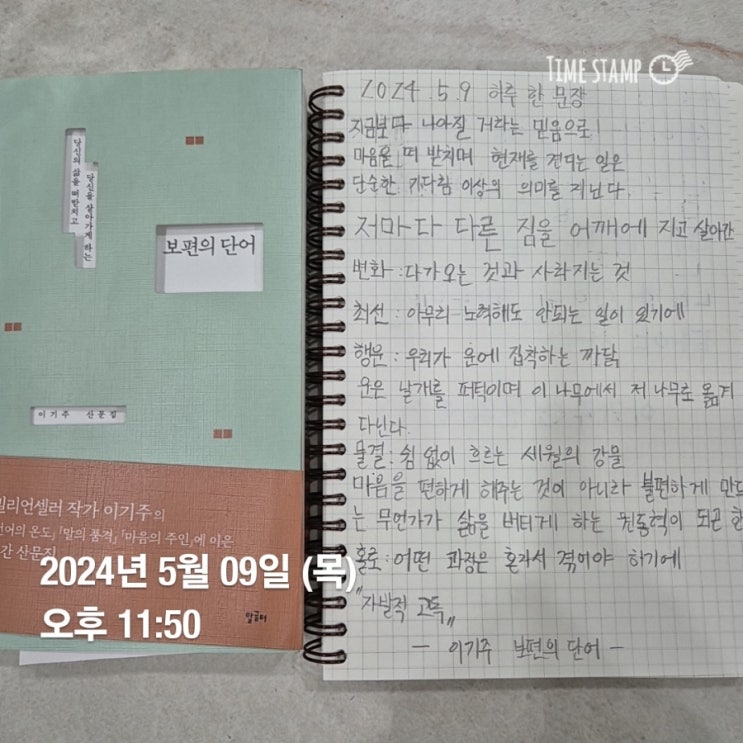 당신의 삶을 떠받치고
당신을 살아가게 하는
보편의 단어
이기주 산문집
밀리언셀러 작가 이기주의
언어의 온도」 「말의 품격」 「마음의 주인」에 이은
간 산문집
말글터
2024년 5월 09일 (목)
오후 11:50
TIME STAMP
2024.5.9 하루 한 문장
지금보다 나아질 거라는 믿음으로
마음을 떠 받치며 현재를 견디는 일은
단순한 기다림 이상의 의미를 지닌다.
저마다 다른 짐을 어깨에 지고 살아간
변화 : 다가오는 것과 사라지는 것
최선 : 아무리 노력해도 안되는 일이 있기에
행운 : 우리가 운에 집착하는 까닭
운은 날개를 퍼덕이며 이 나무에서 저 나무로 옮겨
다닌다.
물결 : 쉼 없이 흐르는 세월의 강물
마음을 편하게 해주는 것이 아니라 불편하게 만드
는 무언가가 삶을 버티게 하는 원동력이 되곤 한
홀로 : 어떤 과정은 혼자서 겪어야 하기에
"자발적 고독"
- 이기주 보편의 단어 -